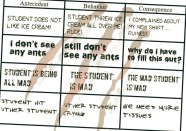 Antecedent Behavior Consequence
STUDENT DOES NOT
LIKE ICE CREAM!
STUDENT THREW ICE
CREAM ALL OVER ME!
I COMPLAINED ABOUT
MY NEW SHIRT....
RUINED!
I don't see
any ants
still don't
see any ants
Why do i have
to fill this out?
STUDENT IS BEING
ALL MAD
THE STUDENT
IS MAD
THE MAD STUDENT
IS MAD
STUDENT HIT
OTHER STUDENT
OTHER STUDENT
CRYING
WE NEED MORE
TISSUES